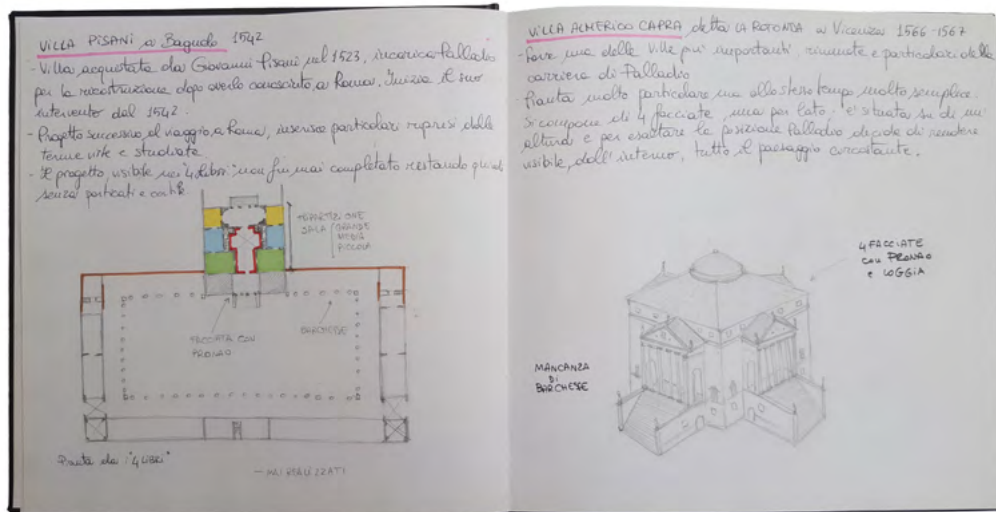 VILLA PISANI a Bagnolo 1542
- Villa acquistata da Giovanni Pisani nel 1523, incarica Palladio
per la ricostruzione dopo averlo conosciuto a Roma. Inizia il suo
intervento dal 1542.
- Progetto successivo al viaggio a Roma, inserisce particolari ripresi dalle
terme viste e studiate
- Il progetto, visibile nei "4 libri" non fu mai completato restando quindi
senza porticati e cortile
RIPARTIZIONE
SALA
GRANDE
MEDIA
PICCOLA
FACCIATA CON
PRONAO
BARCHESSE
Pianta da i "4 LIBRI"
— MAI REALIZZATI
VILLA ALMERICO CAPRA detta LA ROTONDA a Vicenza 1566-1567
- Forse una delle ville più importanti, rinomate e particolari della
carriera di Palladio
- Pianta molto particolare ma allo stesso tempo molto semplice.
Si compone di 4 facciate, una per lato, è situata su di un'
altura e per esaltare la posizione Palladio decide di rendere
visibile, dall'interno, tutto il paesaggio circostante.
4 FACCIATE
CON PRONAO
e LOGGIA
MANCANZA
DI
BARCHESSE